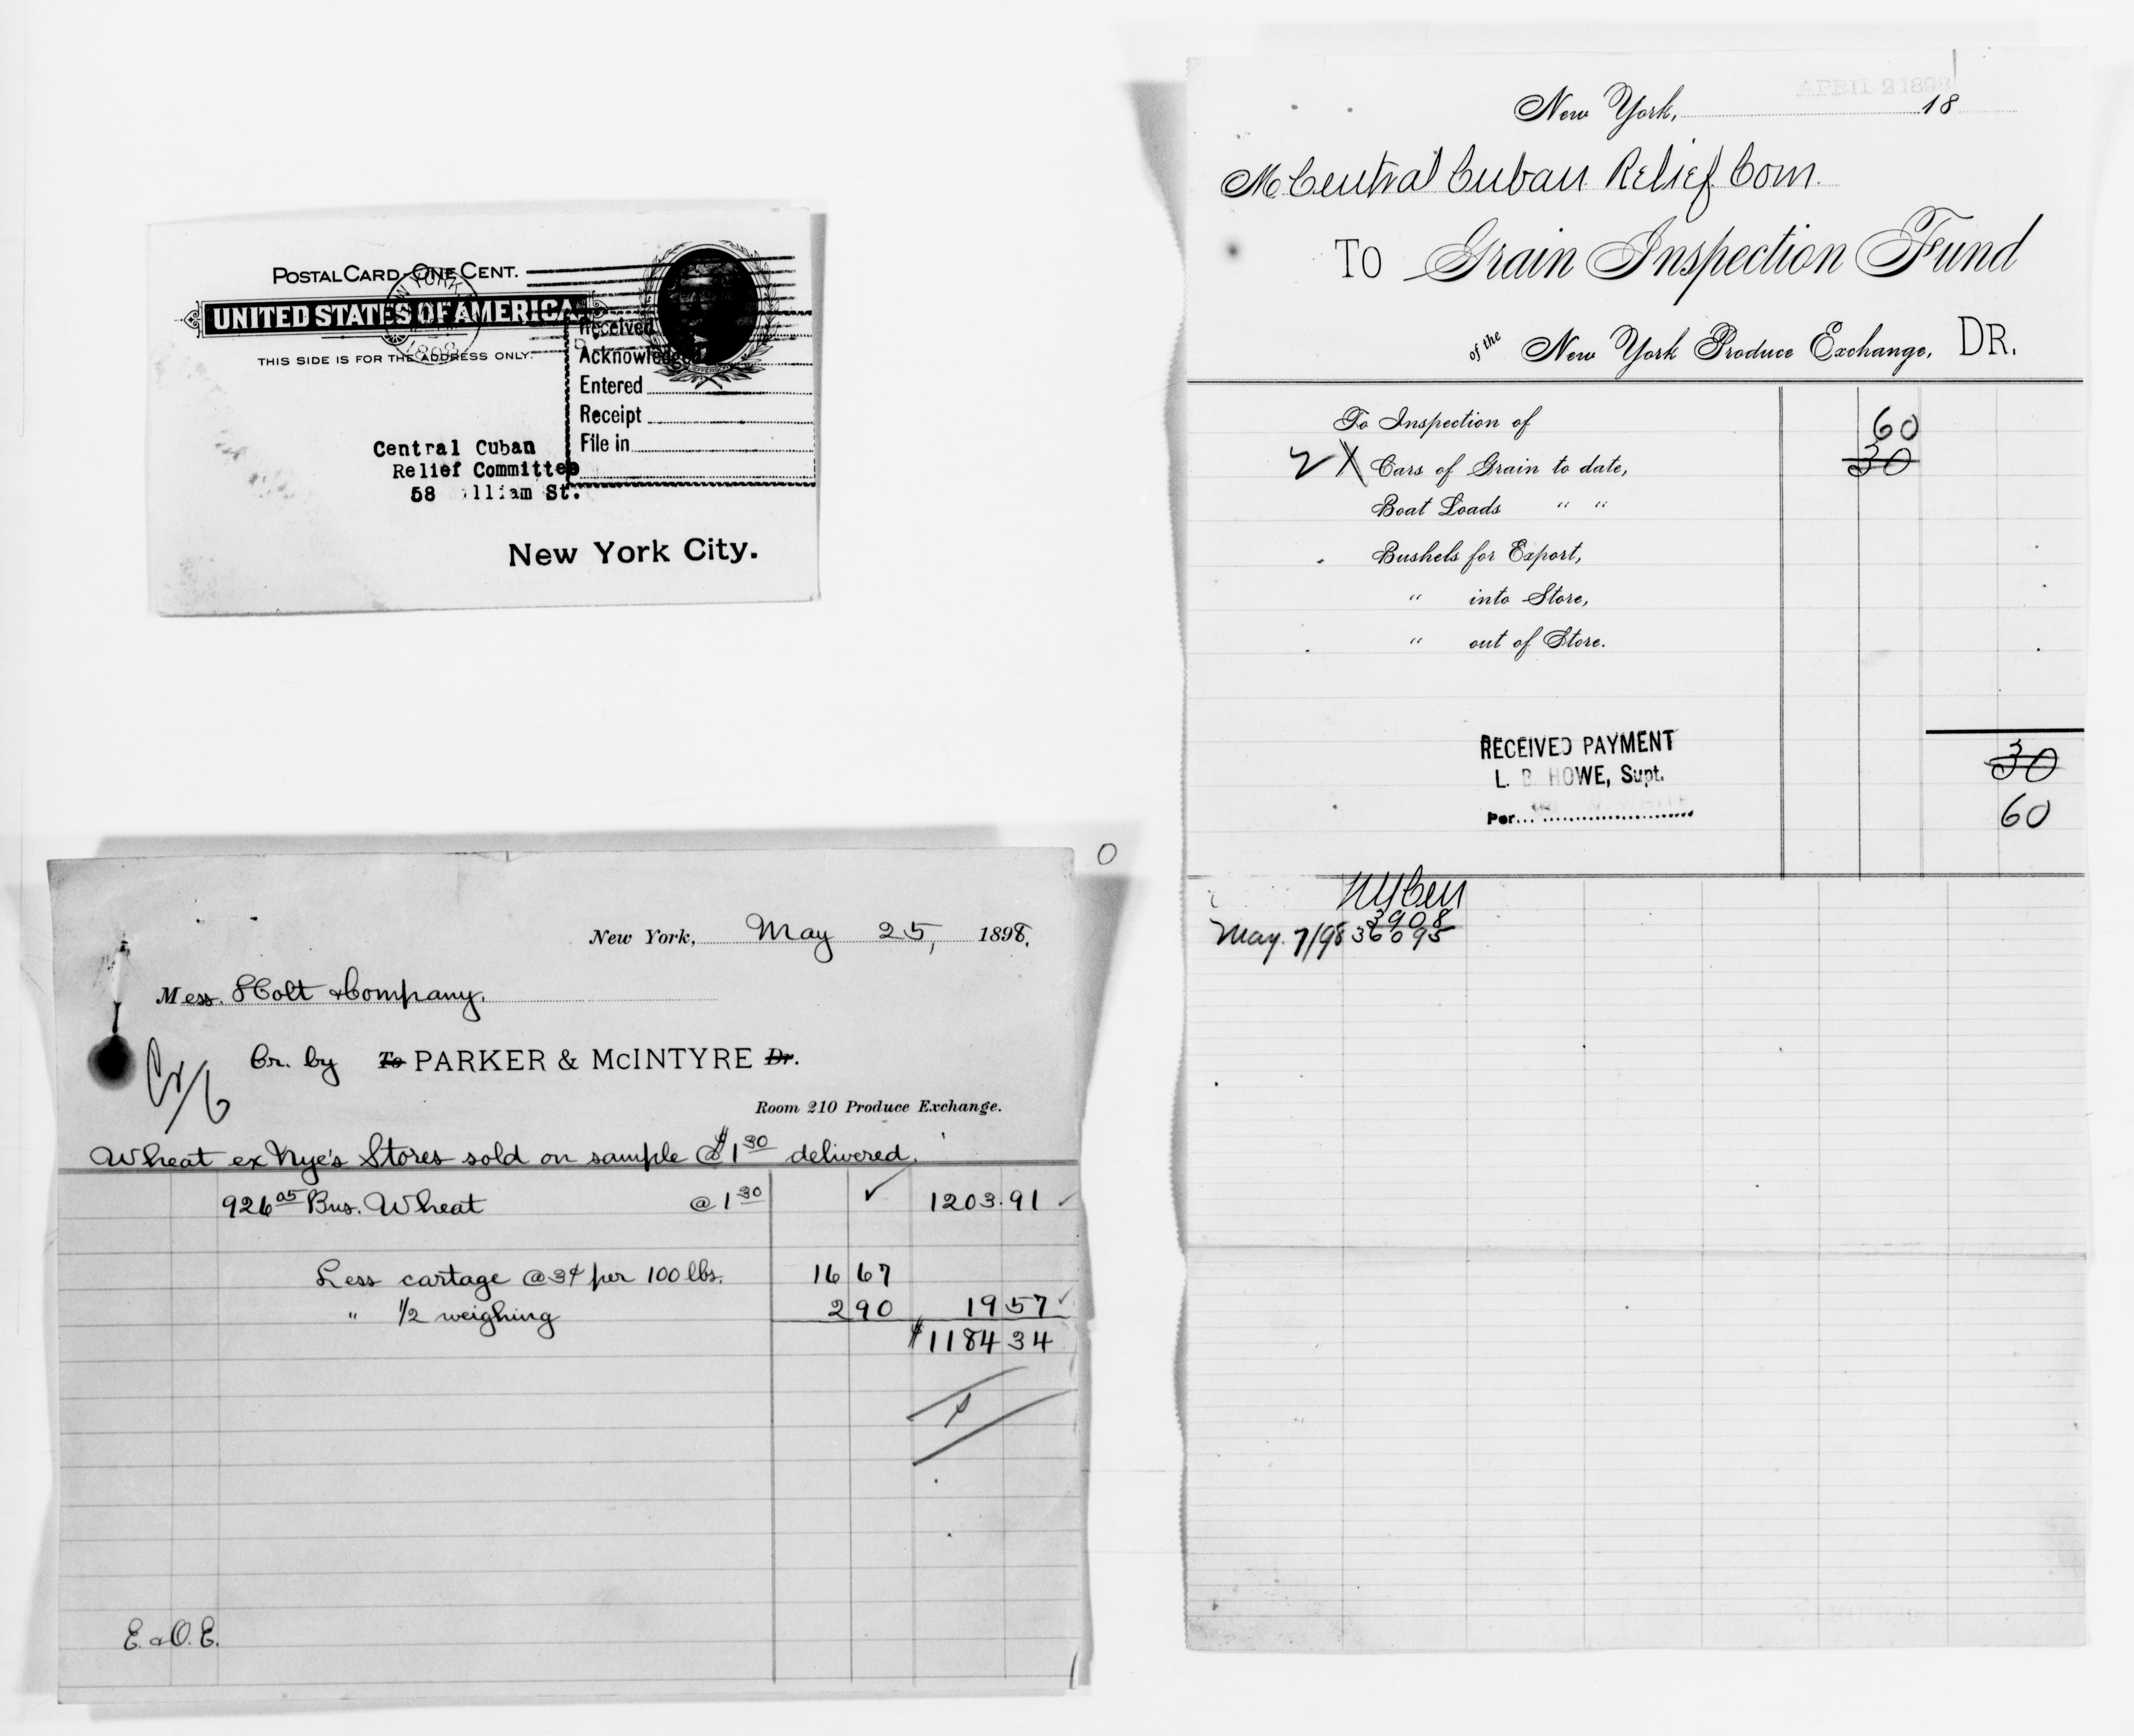 POSTAL CARD-ONE CENT.
UNITED STATES OF AMERICA
THIS SIDE IS FOR THE ADDRESS ONLY.
NEW YORK
1898
Received
Acknowledged
Entered
Receipt
File in
Central Cuban
Relief Committee
58 lliam St.
New York City.
New York, May 25, 1898.
Mess. Holt & Company.
Cr. by To PARKER & McINTYRE Dr.
Room 210 Produce Exchange.
Wheat ex Nye's Stores sold on sample @ $1 30 delivered.
926 05 Bus. Wheat @ 1 30 1203.91
Less cartage @ 3¢ per 100 lbs. 16 67
" 1/2 weighing 2 90 19 57
$1184 34
E. & O. E.
APRIL 2 1898
New York, 18
M Central Cuban Relief Com.
TO Grain Inspection Fund
of the New York Produce Exchange, DR.
To Inspection of 60
2 1 Cars of Grain to date, 30
Boat Loads " "
Bushels for Export,
" into Store,
" out of Store.
RECEIVED PAYMENT
L. B. HOWE, Supt.
Per W. WHITE
30
60
NYCen
3908
May. 7/98 36095